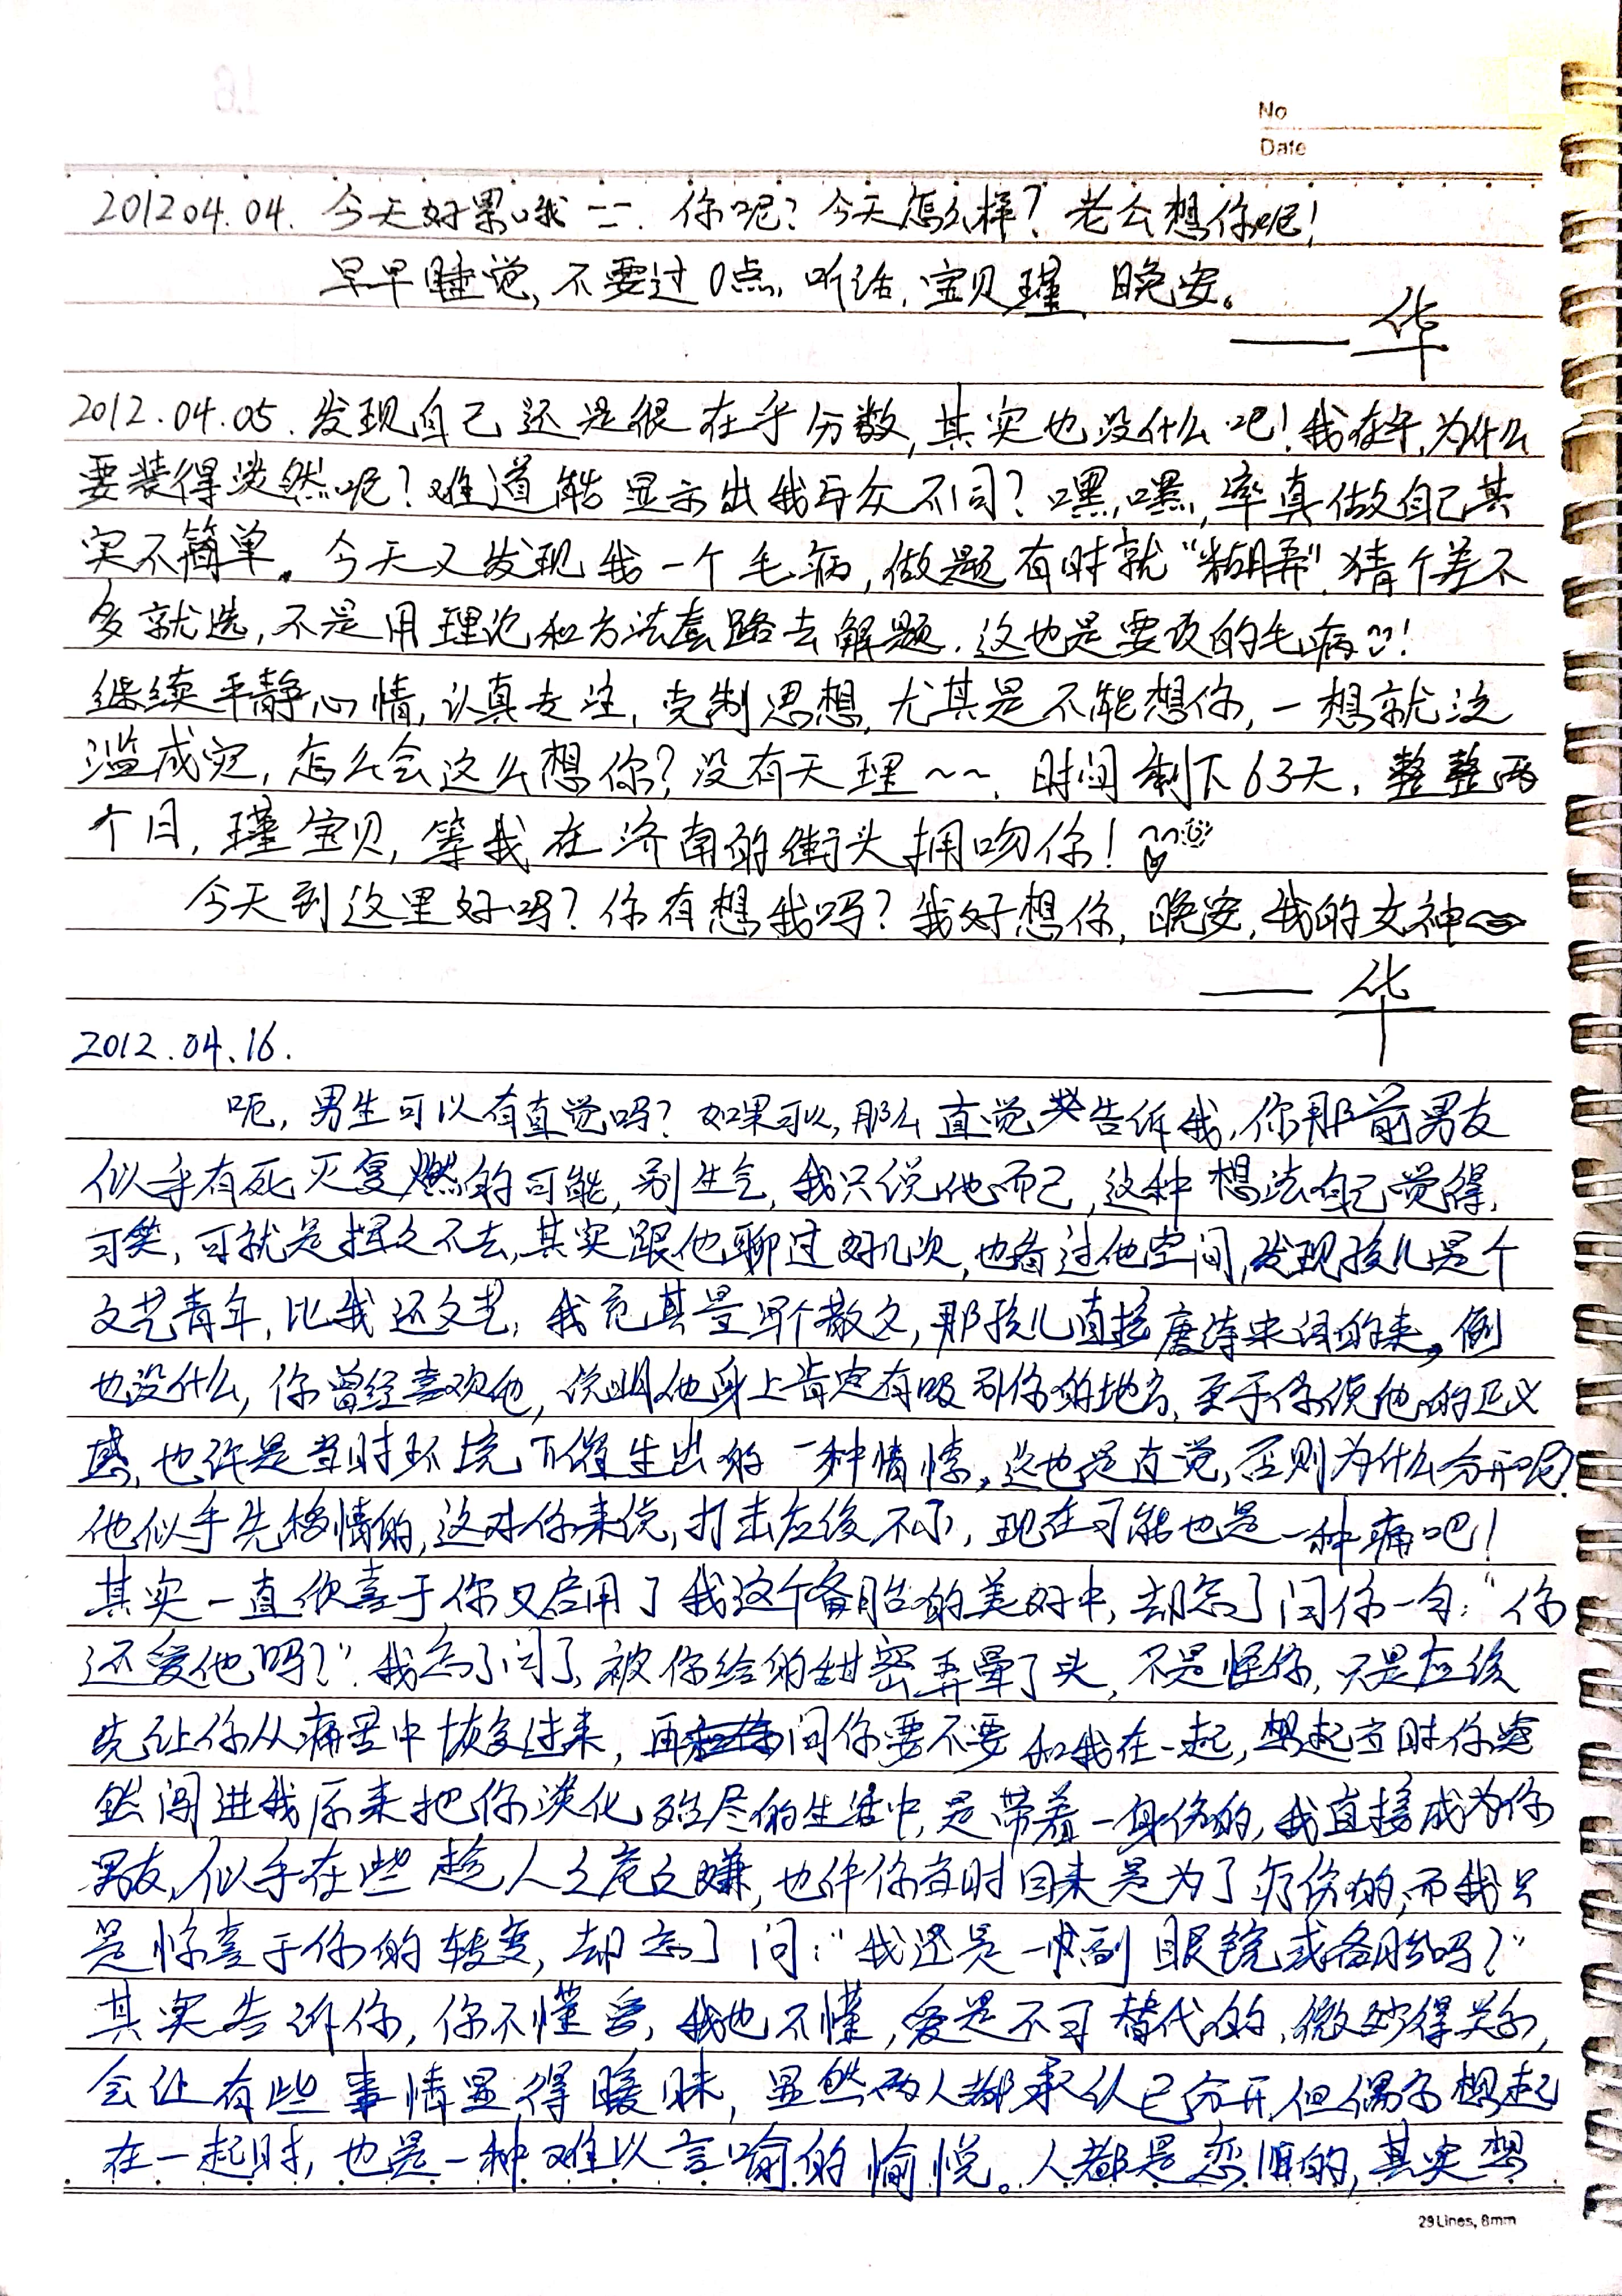 No
Date
201204.04. 今天好累哦 二二. 你呢? 今天怎么样? 老公想你呢!
早早睡觉, 不要过0点, 听话, 宝贝瑾, 晚安。
——华
2012.04.05. 发现自己还是很在乎分数, 其实也没什么吧! 我在乎, 为什么
要装得淡然呢? 难道能显示出我与众不同? 嘿, 嘿, 率真做自己其
实不简单。今天又发现我一个毛病, 做题有时就“糊弄”, 猜个差不
多就选, 不是用理论和方法套路去解题. 这也是要改的毛病~!
继续平静心情, 认真专注, 克制思想, 尤其是不能想你, 一想就泛
滥成灾, 怎么会这么想你? 没有天理~~. 时间剩下63天, 整整两
个月, 瑾宝贝, 等我在济南的街头拥吻你!
今天到这里好吗? 你有想我吗? 我好想你, 晚安, 我的女神
——华
2012.04.16.
呃, 男生可以有直觉吗? 如果可以, 那么直觉告诉我, 你那前男友
似乎有死灰复燃的可能, 别生气, 我只说他而已, 这种想法自己觉得,
可笑, 可就是挥之不去, 其实跟他聊过好几次, 也看过他空间, 发现孩儿是个
文艺青年, 比我还文艺, 我充其量写个散文, 那孩儿直接唐诗宋词的来, 倒
也没什么, 你曾经喜欢他, 说明他身上肯定有吸引你的地方, 至于你说他的正义
感, 也许是当时环境下催生出的一种情愫, 这也是直觉, 否则为什么分开呢?
他似乎先移情的, 这对你来说, 打击应该不小, 现在可能也是一种痛吧!
其实一直欣喜于你又启用了我这个备胎的美好中, 却忘了问你一句: “你
还爱他吗?” 我忘了问了, 被你给的甜蜜弄晕了头, 不是怪你, 只是应该
先让你从痛苦中恢复过来, 再问你要不要和我在一起, 想起当时你突
然闯进我原来把你淡化殆尽的生活中, 是带着一身伤的, 我直接成为你
男友, 似乎在些趁人之危之嫌, 也许你当时回来是为了疗伤的, 而我只
是惊喜于你的转变, 却忘了问: “我还是一副眼镜或备胎吗?”
其实告诉你, 你不懂爱, 我也不懂, 爱是不可替代的, 微妙得关系,
会让有些事情显得暧昧, 显然两人都承认已分开, 但偶尔想起
在一起时, 也是一种难以言喻的愉悦。人都是恋旧的, 其实想
29Lines, 8mm